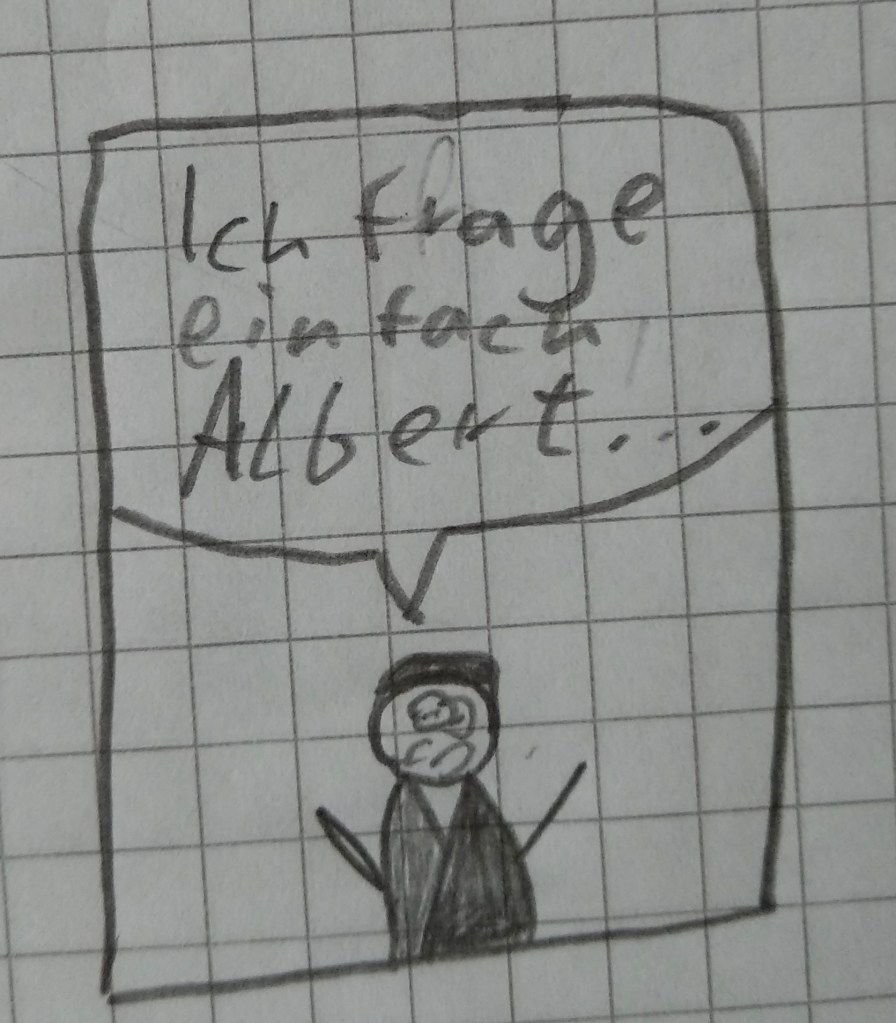 Ich frage
einfach
Albert...